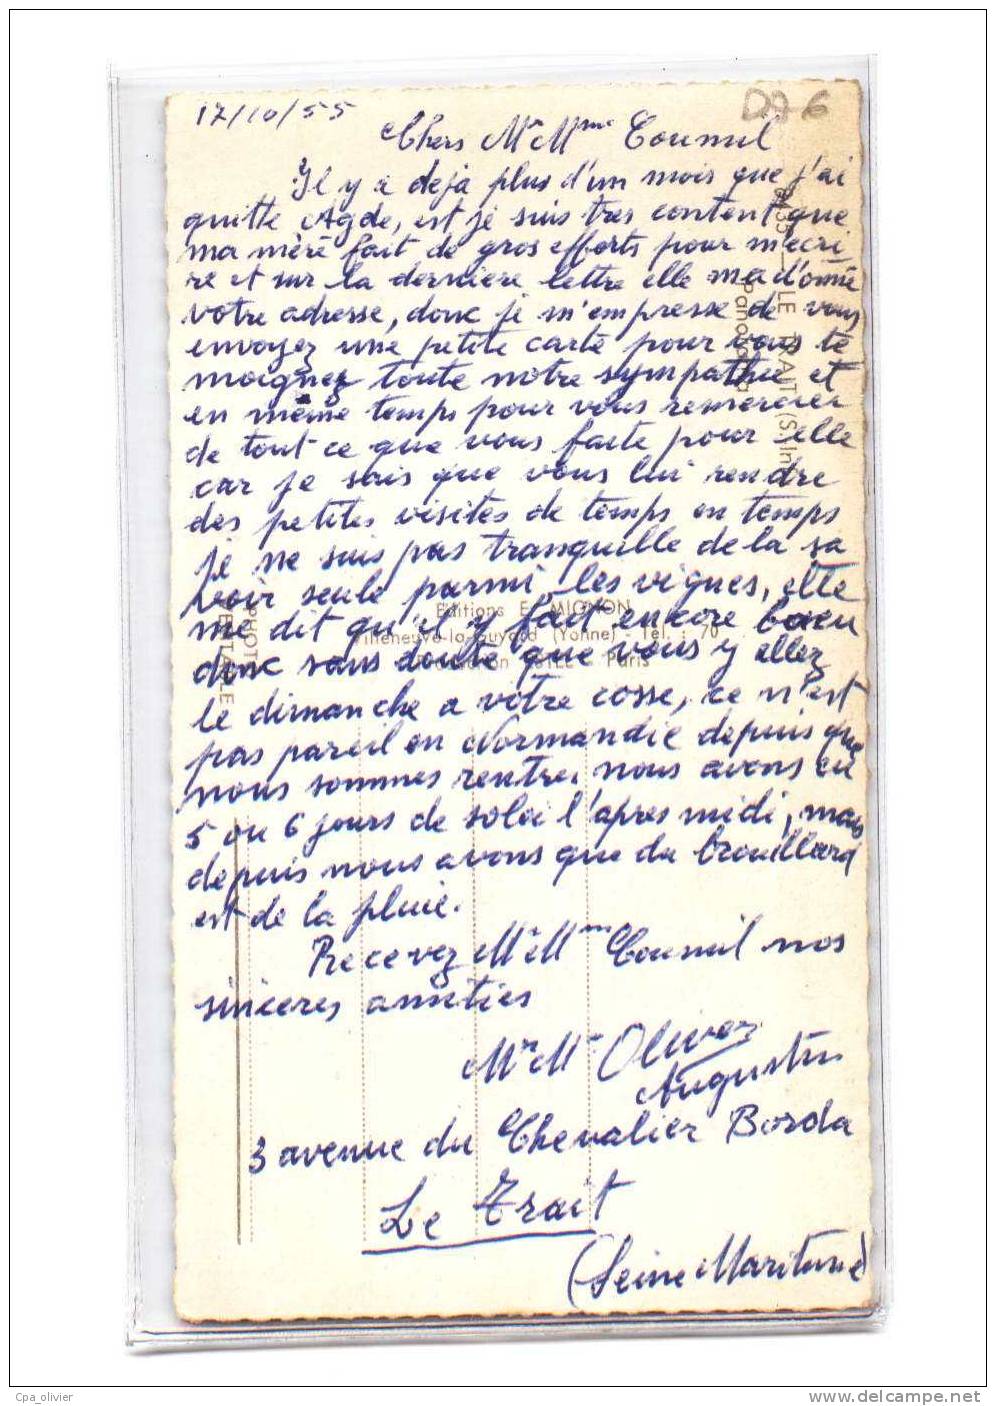 17/10/55
DA 6
Chers Mr Mme Counil
Il y a deja plus d'un mois que j'ai
quitte Agde, est je suis tres content que
ma mère fait de gros efforts pour m'ecri
re et sur la derniere lettre elle ma d'onné
votre adresse, donc je m'empresse de vous
envoyez une petite carte pour vous te
moignez toute notre sympathie et
en même temps pour vous remercier
de tout ce que vous faite pour elle
car je sais que vous lui rendre
des petites visites de temps en temps
je ne suis pas tranquille de la sa
voir seule parmi les vignes, elle
me dit qu'il y fait encore beau
donc sans doute que vous y allez
le dimanche a votre cosse, ce n'est
pas pareil en Normandie depuis que
nous sommes rentrer nous avons eu
5 ou 6 jours de soleil l'apres midi, mais
depuis nous avons que du brouillard
est de la pluie.
Recevez Mr Mme Counil nos
sinceres amities
Mr Mme Oliver
Augustin
3 avenue du Chevalier Borda
Le Trait
(Seine Maritime)
LE TRAIT (S.-Inf
Editions E. MIGNON
Villeneuve-la-Guyard (Yonne) - Tél. : 70
Paris
Cpa_olivier
www.delcampe.net